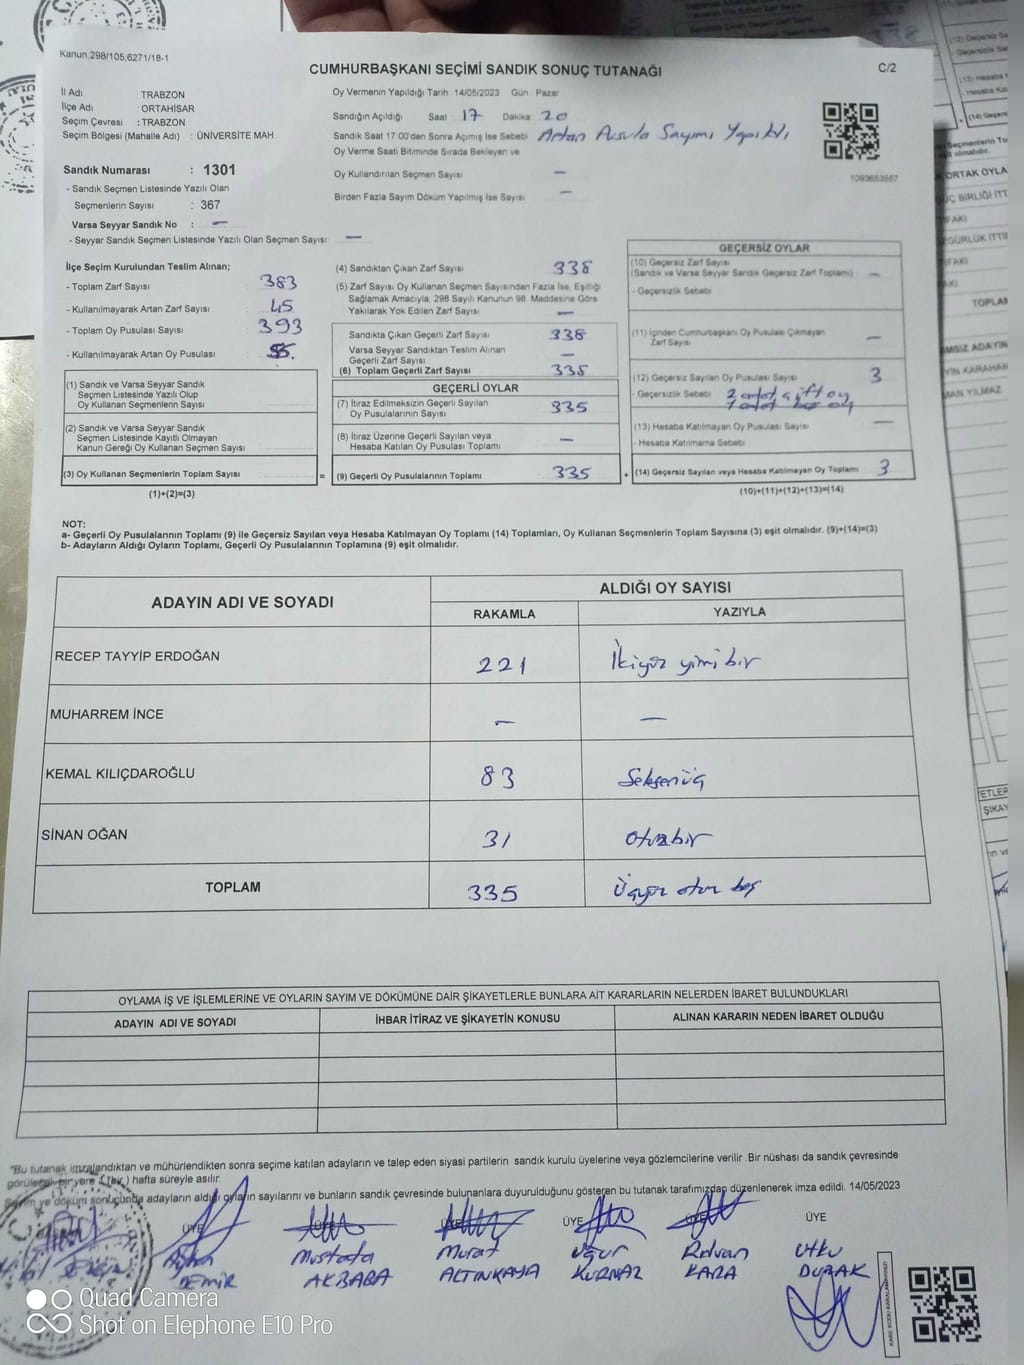 Kanun:298/105,6271/18-1
CUMHURBAŞKANI SEÇİMİ SANDIK SONUÇ TUTANAĞI
C/2
İl Adı : TRABZON
İlçe Adı : ORTAHİSAR
Seçim Çevresi : TRABZON
Seçim Bölgesi (Mahalle Adı) : ÜNİVERSİTE MAH.
Oy Vermenin Yapıldığı Tarih 14/05/2023 Gün : Pazar
Sandığın Açıldığı Saat 17 Dakika 20
Sandık Saat 17:00'den Sonra Açılmış İse Sebebi Artan Pusula Sayımı Yapıldı
Oy Verme Saati Bitiminde Sırada Bekleyen ve
Oy Kullandırılan Seçmen Sayısı : —
Birden Fazla Sayım Döküm Yapılmış İse Sayısı : —
1093653557
Sandık Numarası : 1301
- Sandık Seçmen Listesinde Yazılı Olan
Seçmenlerin Sayısı : 367
Varsa Seyyar Sandık No : —
- Seyyar Sandık Seçmen Listesinde Yazılı Olan Seçmen Sayısı: —
İlçe Seçim Kurulundan Teslim Alınan;
- Toplam Zarf Sayısı : 383
- Kullanılmayarak Artan Zarf Sayısı : 45
- Toplam Oy Pusulası Sayısı : 393
- Kullanılmayarak Artan Oy Pusulası :
(1) Sandık ve Varsa Seyyar Sandık
Seçmen Listesinde Yazılı Olup
Oy Kullanan Seçmenlerin Sayısı
(2) Sandık ve Varsa Seyyar Sandık
Seçmen Listesinde Kayıtlı Olmayan
Kanun Gereği Oy Kullanan Seçmen Sayısı
(3) Oy Kullanan Seçmenlerin Toplam Sayısı =
(1)+(2)=(3)
(4) Sandıktan Çıkan Zarf Sayısı 338
(5) Zarf Sayısı Oy Kullanan Seçmen Sayısından Fazla İse, Eşitliği
Sağlamak Amacıyla, 298 Sayılı Kanunun 98. Maddesine Göre
Yakılarak Yok Edilen Zarf Sayısı —
Sandıkta Çıkan Geçerli Zarf Sayısı 338
Varsa Seyyar Sandıktan Teslim Alınan
Geçerli Zarf Sayısı —
(6) Toplam Geçerli Zarf Sayısı 338
GEÇERLİ OYLAR
(7) İtiraz Edilmeksizin Geçerli Sayılan
Oy Pusulalarının Sayısı 335
(8) İtiraz Üzerine Geçerli Sayılan veya
Hesaba Katılan Oy Pusulası Toplamı —
(9) Geçerli Oy Pusulalarının Toplamı 335 +
GEÇERSİZ OYLAR
(10) Geçersiz Zarf Sayısı
(Sandık ve Varsa Seyyar Sandık Geçersiz Zarf Toplamı) —
- Geçersizlik Sebebi
(11) İçinden Cumhurbaşkanı Oy Pusulası Çıkmayan
Zarf Sayısı —
(12) Geçersiz Sayılan Oy Pusulası Sayısı 3
- Geçersizlik Sebebi 2 adet çift oy
1 adet boş oy
(13) Hesaba Katılmayan Oy Pusulası Sayısı —
- Hesaba Katılmama Sebebi
(14) Geçersiz Sayılan veya Hesaba Katılmayan Oy Toplamı 3
(10)+(11)+(12)+(13)=(14)
NOT:
a- Geçerli Oy Pusulalarının Toplamı (9) ile Geçersiz Sayılan veya Hesaba Katılmayan Oy Toplamı (14) Toplamları, Oy Kullanan Seçmenlerin Toplam Sayısına (3) eşit olmalıdır. (9)+(14)=(3)
b- Adayların Aldığı Oyların Toplamı, Geçerli Oy Pusulalarının Toplamına (9) eşit olmalıdır.
ADAYIN ADI VE SOYADI
ALDIĞI OY SAYISI
RAKAMLA YAZIYLA
RECEP TAYYİP ERDOĞAN 221 İkiyüz yirmi bir
MUHARREM İNCE — —
KEMAL KILIÇDAROĞLU 83 Seksenüç
SİNAN OĞAN 31 Otuzbir
TOPLAM 335 Üçyüz otuz beş
OYLAMA İŞ VE İŞLEMLERİNE VE OYLARIN SAYIM VE DÖKÜMÜNE DAİR ŞİKAYETLERLE BUNLARA AİT KARARLARIN NELERDEN İBARET BULUNDUKLARI
ADAYIN ADI VE SOYADI İHBAR İTİRAZ VE ŞİKAYETİN KONUSU ALINAN KARARIN NEDEN İBARET OLDUĞU
"Bu tutanak imzalandıktan ve mühürlendikten sonra seçime katılan adayların ve talep eden siyasi partilerin sandık kurulu üyelerine veya gözlemcilerine verilir. Bir nüshası da sandık çevresinde
görülecek bir yere 1 (bir) hafta süreyle asılır.
Sayım ve döküm sonucunda adayların aldığı oyların sayılarını ve bunların sandık çevresinde bulunanlara duyurulduğunu gösteren bu tutanak tarafımızdan düzenlenerek imza edildi. 14/05/2023
ÜYE ÜYE ÜYE ÜYE ÜYE ÜYE
Mustafa Murat Uğur Rıdvan Utku
DEMİR AKBABA ALTINKAYA KURNAZ KARA DURAK
KARE KODU KARALAMAYINIZ!
Quad Camera
Shot on Elephone E10 Pro